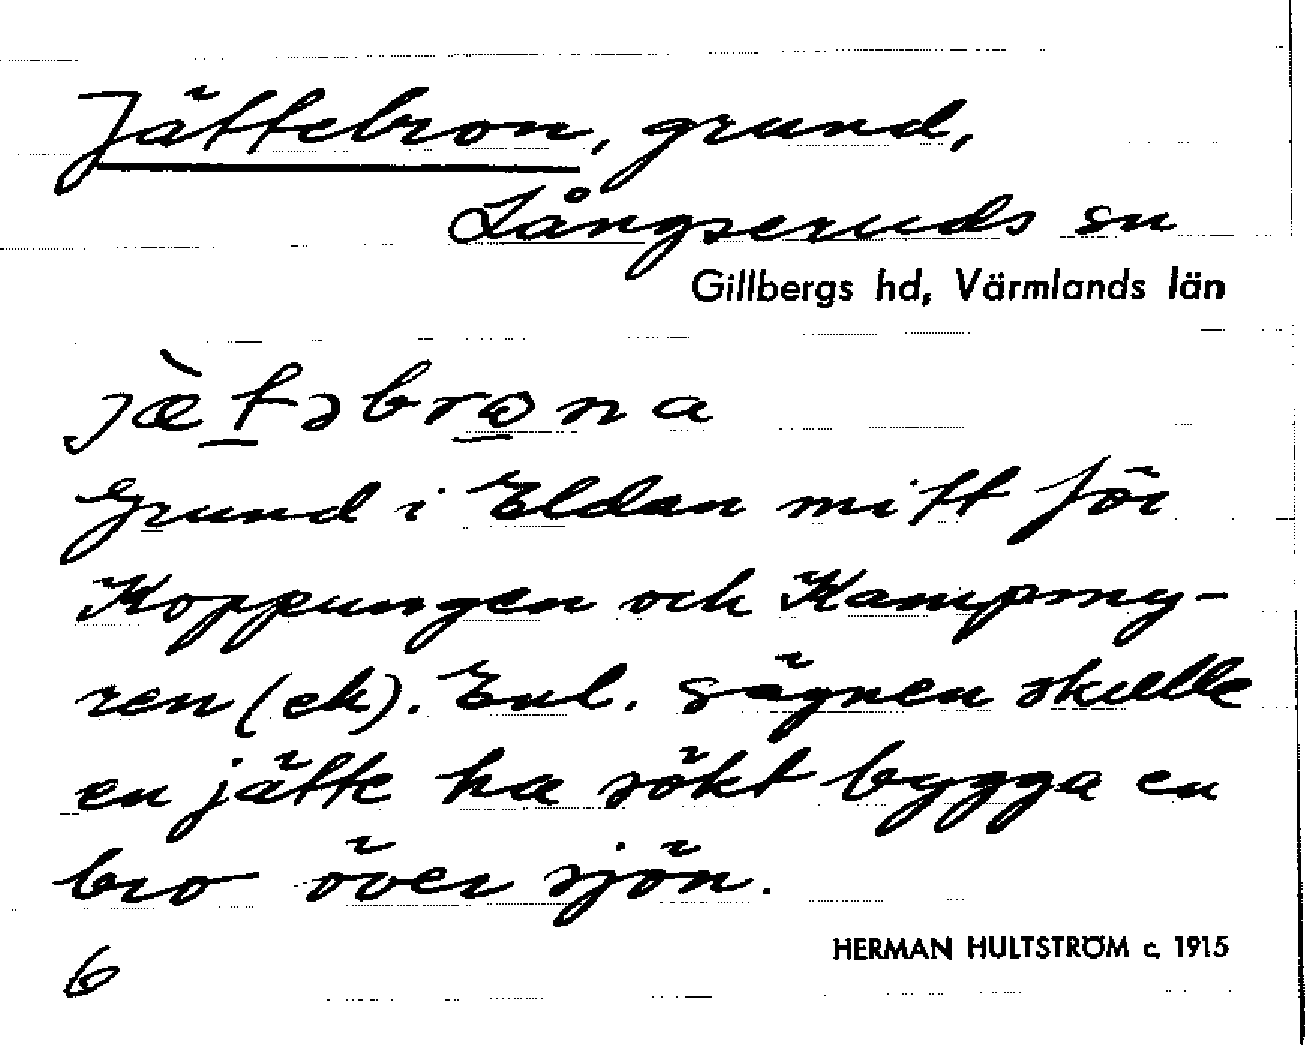 Jättebron, grund,
Långseruds sn
Gillbergs hd, Värmlands län
jæ̀t̲əbro̲na
Grund i Eldan mitt för
Koppungen och Kampmy-
ren (ek). Enl. sägnen skulle
en jätte ha sökt bygga en
bro över sjön.
HERMAN HULTSTRÖM c. 1915
6